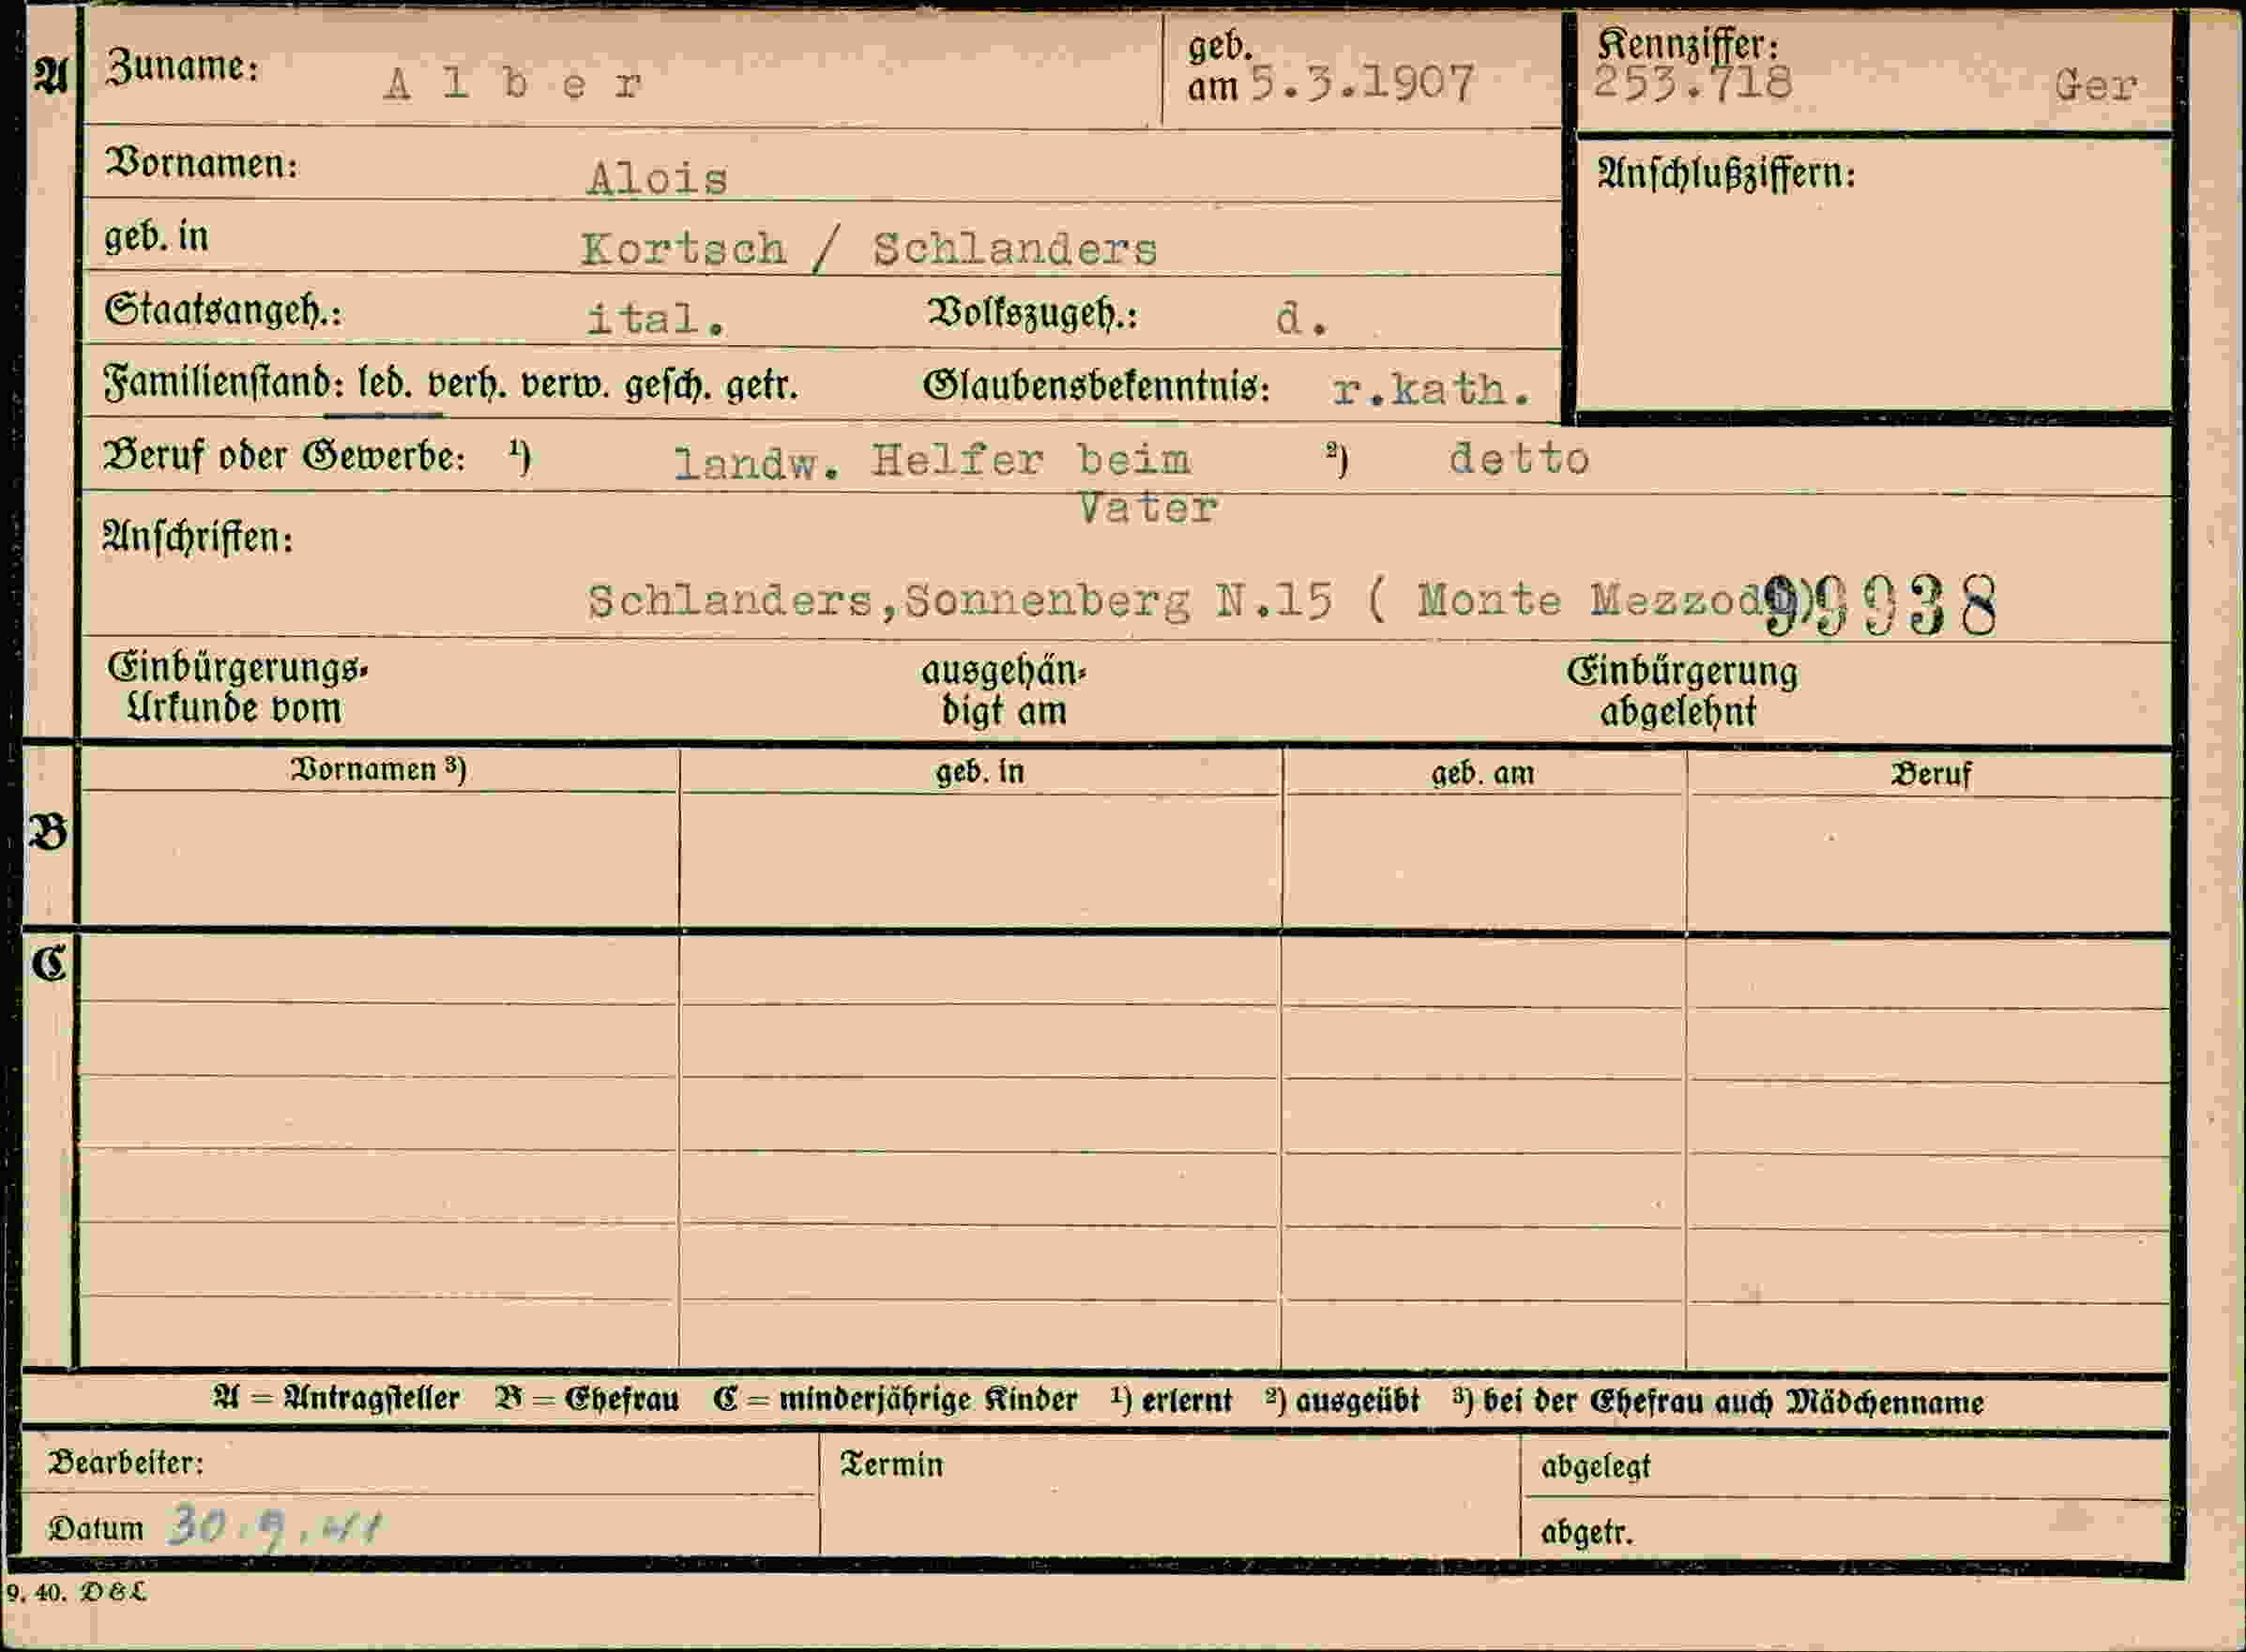 A Zuname: Alber geb. am 5.3.1907 Kennziffer: 253.718 Ger
Vornamen: Alois Anschlußziffern:
geb. in Kortsch / Schlanders
Staatsangeh.: ital. Volkszugeh.: d.
Familienstand: led. verh. verw. gesch. getr. Glaubensbekenntnis: r.kath.
Beruf oder Gewerbe: ¹) landw. Helfer beim Vater ²) detto
Anschriften:
Schlanders,Sonnenberg N.15 ( Monte Mezzodi) 99938
Einbürgerungs-Urkunde vom ausgehändigt am Einbürgerung abgelehnt
B Vornamen ³) geb. in geb. am Beruf
C
A = Antragsteller B = Ehefrau C = minderjährige Kinder ¹) erlernt ²) ausgeübt ³) bei der Ehefrau auch Mädchenname
Bearbeiter: Termin abgelegt
Datum 30.9.41 abgetr.
9. 40. D&L